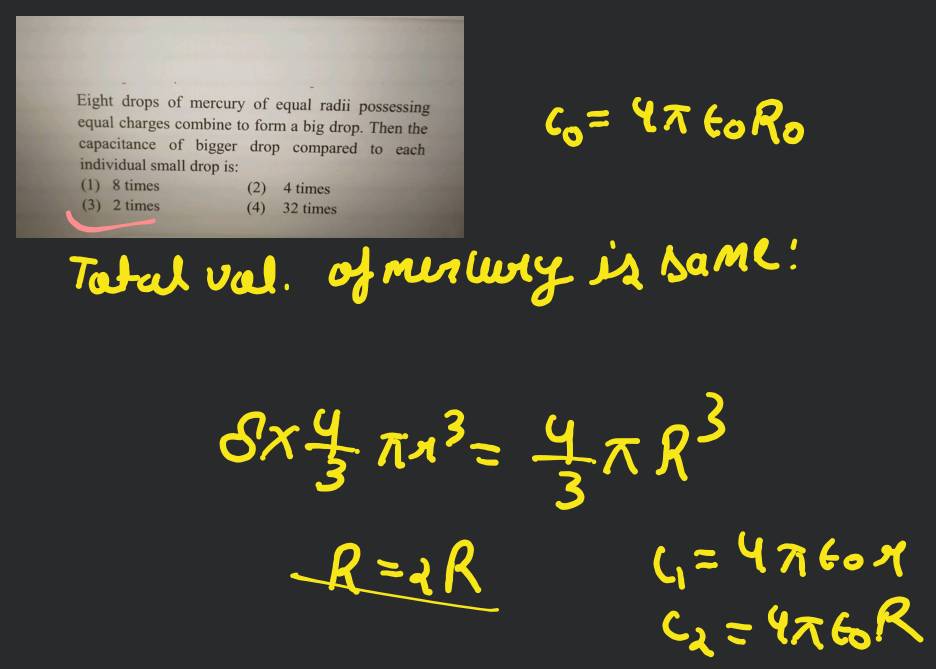 Eight drops of mercury of equal radii possessing
equal charges combine to form a big drop. Then the
capacitance of bigger drop compared to each
individual small drop is:
(1) 8 times (2) 4 times
(3) 2 times (4) 32 times
C₀ = 4π ϵ₀ R₀
Total vol. of mercury is same:
8 × 4/3 π r³ = 4/3 π R³
R = 2R
C₁ = 4π ϵ₀ r
C₂ = 4π ϵ₀ R